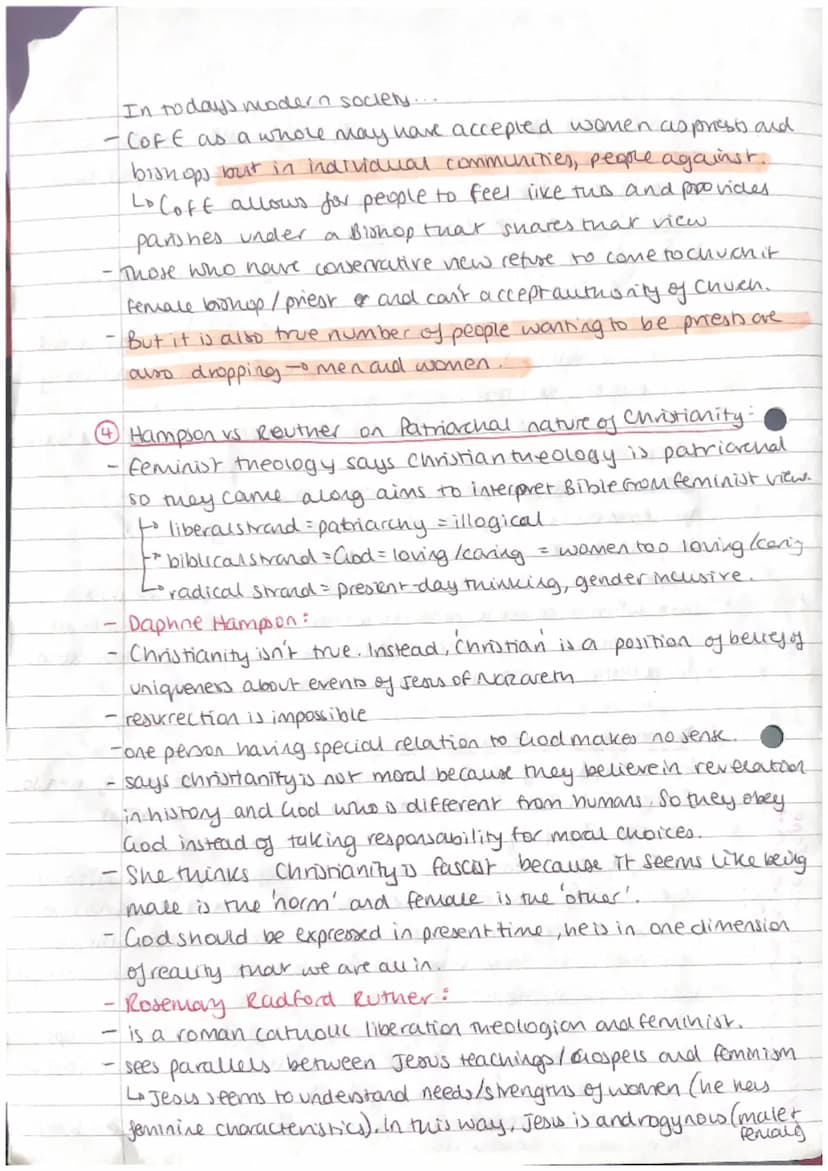 In todays modern society...
- CofE as a whole may have accepted women as priests and
bishops but in individual communities, people against.
↳ CofE allows for people to feel like this and provides
parishes under a Bishop that shares that view
- Those who have conservative view refuse to come to chuch if
female bishop/priest or and can't accept authority of Chuch.
- But it is also true number of people wanting to be priests are
also dropping → men and women.
④ Hampson vs Reuther on Patriarchal nature of Christianity:
- feminist theology says Christian theology is patriarchal
so they came along aims to interpret Bible from feminist view.
↳ liberal strand = patriarchy = illogical
↳ biblical strand = God = loving/caring = women too loving/caring
↳ radical strand = present-day thinking, gender inclusive.
- Daphne Hampson:
- Christianity isn't true. Instead, 'Christian' is a position of belief of
uniqueness about events of Jesus of Nazareth
- resurrection is impossible
- one person having special relation to God makes no sense.
- says christianity is not moral because they believe in revelation
in history and God who is different from humans. So they obey
God instead of taking responsability for moral choices.
- She thinks Christianity is fascist because it seems like being
male is the 'norm' and female is the 'other'.
- God should be expressed in present time, he is in one dimension
of reality that we are all in.
- Rosemary Radford Ruther:
- is a roman catholic liberation theologian and feminist.
- sees parallels between Jesus teachings/Gospels and feminism
↳ Jesus seems to understand needs/strengths of women (he has
feminine characteristics). In this way, Jesus is androgynous (male+
female)